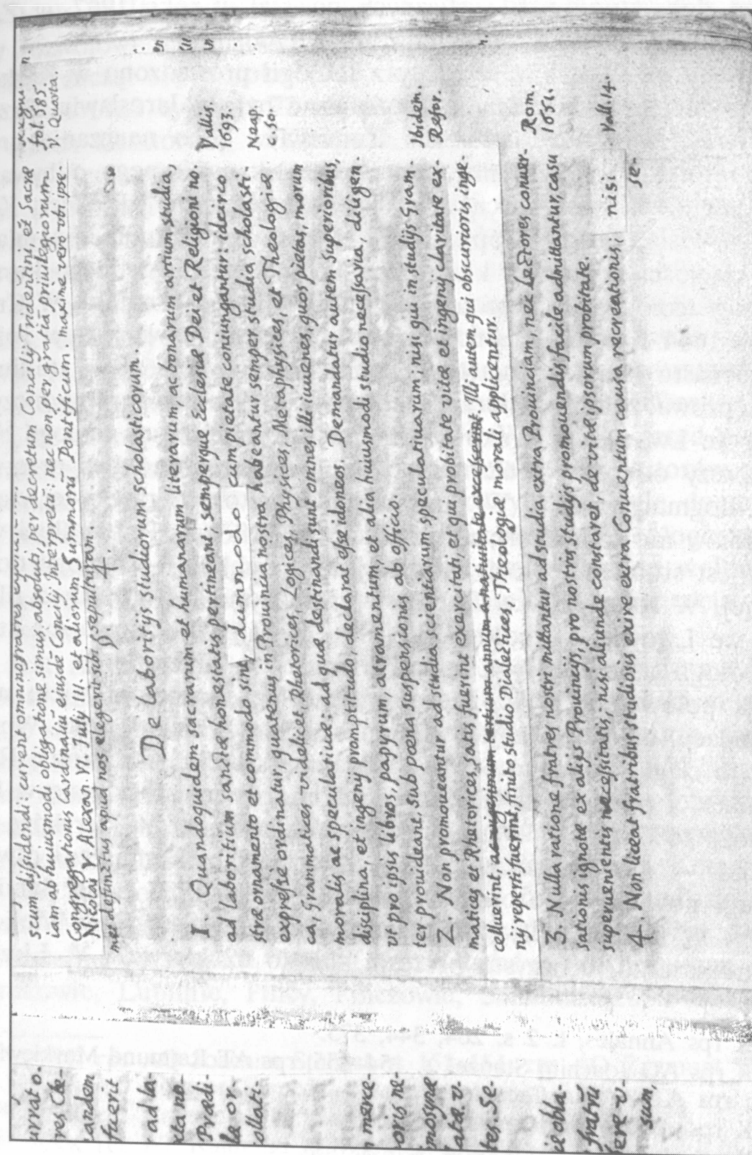 scum dissidendi: curent
iam ab huiusmodi obligatione simus absoluti, per decretum Concilij Tridentini, et Sacræ
Congregationis Cardinaliū eiusdē Concilij Interpretū: nec non per gratiā priuilegiorum
Nicolai V. Alexan. VI. Julij III. et aliorum Summorū Pontificum. maxime vero vbi ipse-
met defunctus apud nos elegerit sibi sepulturam.
fol. 585.
V. Quarta.
De laboritijs studiorum scholasticorum.
1 Quandoquidem sacrarum et humanarum literarum, ac bonarum artium studia,
ad laboritium sanctæ honestatis pertinant: semperque Ecclesiæ Dei et Religioni no-
stræ ornamento et commodo sint, dummodo cum pietate coniungantur: idcirco
expresse ordinatur, quatenus in Prouincia nostra habeantur semper studia scholasti-
ca, Grammatices videlicet, Rhetorices, Logices, Physices, Metaphysices, et Theologiæ
moralis ac speculatiuæ: ad quæ destinandi sunt omnes illi iuuenes, quos pietas, morum
disciplina, et ingenij promptitudo, declarat esse idoneos. Demandatur autem superioribus,
vt pro ipsis libros, papyrum, atramentum, et alia huiusmodi studio necessaria, diligen
ter prouideant, sub poena suspensionis ab officio.
Vallis.
1693.
Neap.
c. 50.
2 Non promoueantur ad studia scientiarum speculatiuarum; nisi qui in studijs Gram
matices et Rhetorices, satis fuerint exercitati, et qui probitate vitæ et ingenij claritate ex-
celluerint, Illi autem qui obscurioris inge-
nij reperti fuerint, finito studio Dialectices, Theologiæ morali applicentur.
Ibidem.
Refor.
3 Nulla ratione fratres nostri mittantur ad studia extra Prouinciam, nec Lectores conuer-
sationis ignotæ ex alijs Prouincijs, pro nostris studijs promouendis facile admittantur, casu
superuenientis necessitatis, nisi aliunde constaret de vitæ ipsorum probitate.
4 Non liceat fratribus studiosis exire extra Conuentum causa recreationis nisi
se-
Rom.
1651.
Vall. 14.
res, Che
andem
fueri.
ad la-
Pyxidi-
la or-
ollati.
merce-
oris ne
imosynæ
tes. Se-
ie obli-
fratru